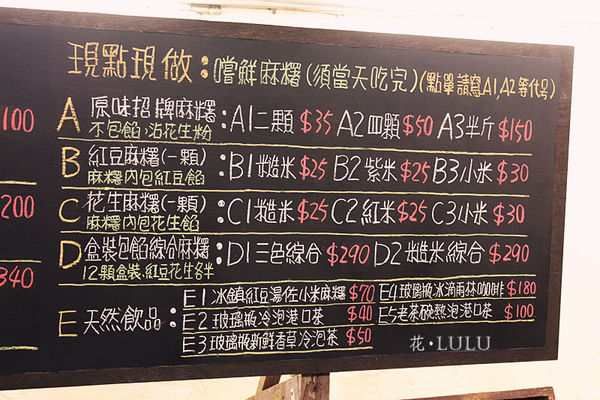 現點現做：嚐鮮麻糬(須當天吃完)(點單請寫A1,A2等代号)
100
A 原味招牌麻糬：A1二顆 $35 A2四顆 $50 A3半斤 $150
不包餡.沾花生粉
B 紅豆麻糬(一顆)：B1糙米 $25 B2紫米 $25 B3小米 $30
麻糬內包紅豆餡
200
C 花生麻糬(一顆)：C1糙米 $25 C2紅米 $25 C3小米 $30
麻糬內包花生餡
D 盒裝包餡綜合麻糬：D1三色綜合 $290 D2糙米綜合 $290
12顆盒裝、紅豆花生各半
340
E 天然飲品：
E1冰鎮紅豆湯佐小米麻糬 $70
E2玻璃瓶冷泡港口茶 $40
E3玻璃瓶新鮮香草冷泡茶 $50
E4玻璃瓶冰滴雨林咖啡 $180
E5老茶碗熱泡港口茶 $100
花·LULU